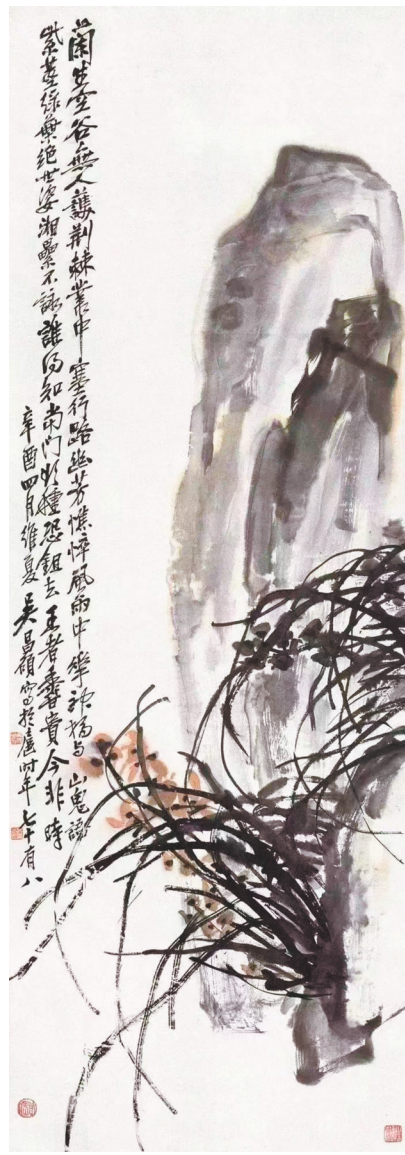 蘭生空谷無人護荆棘叢中塞行路幽芳憔悴風雨中華神猶与山鬼語
紫莖綠葉絕世姿湘纍不詠誰得知當門欲種恐鉏去王者香貴今非時
辛酉四月維夏吳昌碩寫於滬时年七十有八